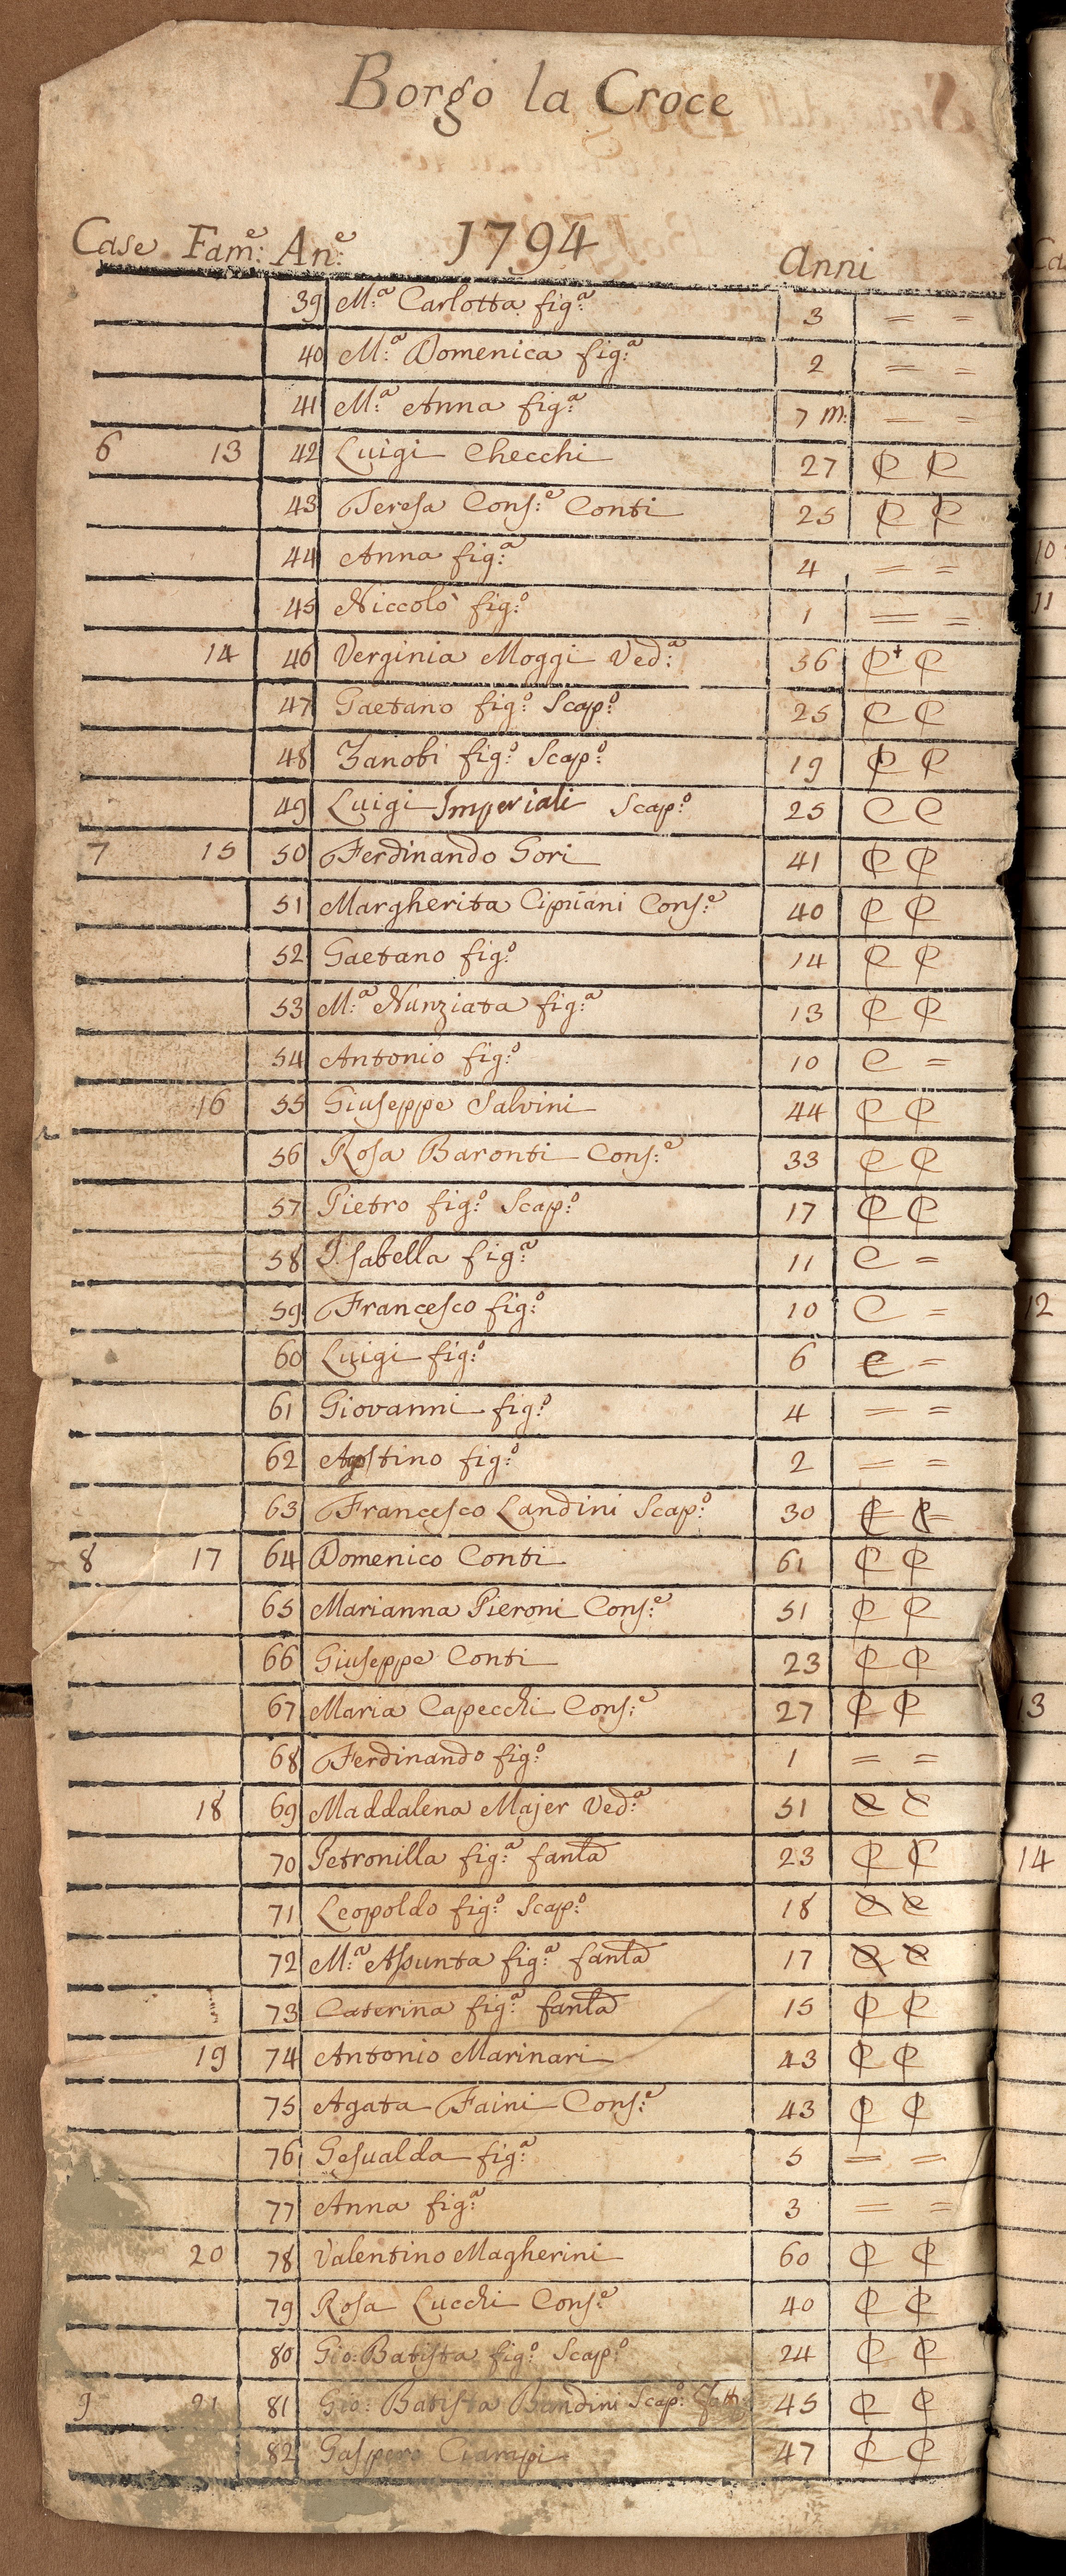 Borgo la Croce
Case Fam:e An:e 1794 Anni
39 M:a Carlotta fig:a 3 = =
40 M:a Domenica fig:a 2 = =
41 M:a Anna fig:a 7 m: = =
6 13 42 Luigi Checchi 27 C C
43 Teresa Cons:e Conti 25 C C
44 Anna fig:a 4 = =
45 Niccolò fig:o 1 = =
14 46 Verginia Moggi Ved:a 56 C+ C
47 Gaetano fig:o Scap:o 25 C C
48 Zanobi fig:o Scap:o 19 C C
49 Luigi Imperiali Scap:o 25 C C
7 15 50 Ferdinando Gori 41 C C
51 Margherita Cipriani Cons:e 40 C C
52 Gaetano fig:o 14 C C
53 M:a Nunziata fig:a 13 C C
54 Antonio fig:o 10 C =
16 55 Giuseppe Salvini 44 C C
56 Rosa Baronti Cons:e 33 C C
57 Pietro fig:o Scap:o 17 C C
58 Isabella fig:a 11 C =
59 Francesco fig:o 10 C =
60 Luigi fig:o 6 C =
61 Giovanni fig:o 4 = =
62 Agostino fig:o 2 = =
63 Francesco Landini Scap:o 30 C C
8 17 64 Domenico Conti 61 C C
65 Marianna Pieroni Cons:e 51 C C
66 Giuseppe Conti 23 C C
67 Maria Capecchi Cons:e 27 C C
68 Ferdinando fig:o 1 = =
18 69 Maddalena Majer Ved:a 51 C C
70 Petronilla fig:a fanla 23 C C
71 Leopoldo fig:o Scap:o 18 C C
72 M:a Assunta fig:a fanla 17 C C
73 Caterina fig:a fanla 15 C C
19 74 Antonio Marinari 43 C C
75 Agata Faini Cons:e 43 C C
76 Gesualda fig:a 5 = =
77 Anna fig:a 3 = =
20 78 Valentino Magherini 60 C C
79 Rosa Lucchi Cons:e 40 C C
80 Gio: Batista fig:o Scap:o 24 C C
9 21 81 Gio: Batista Bandini Scap:o 45 C C
82 Gaspero Ciampi 47 C C
10
11
12
13
14